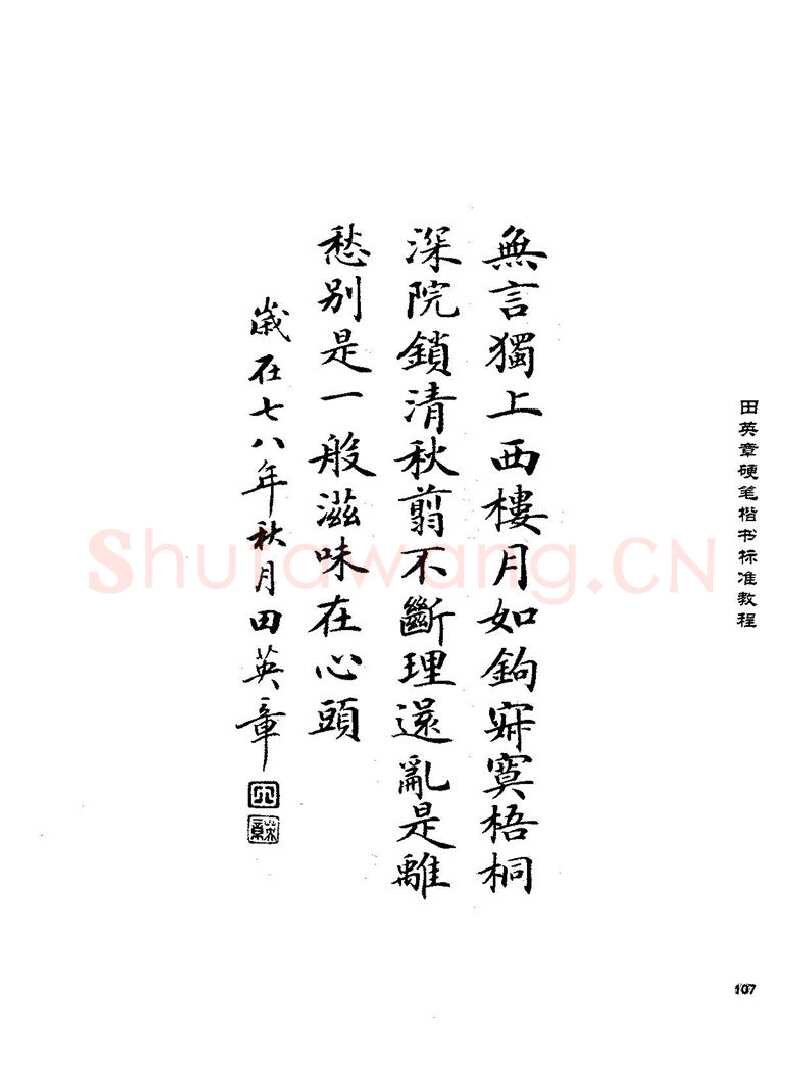 無言獨上西樓月如鉤寂寞梧桐
深院鎖清秋翦不斷理還亂是離
愁別是一般滋味在心頭
歲在七八年秋月田英章
田
英章
田英章硬笔楷书标准教程
Shufawang.CN
107